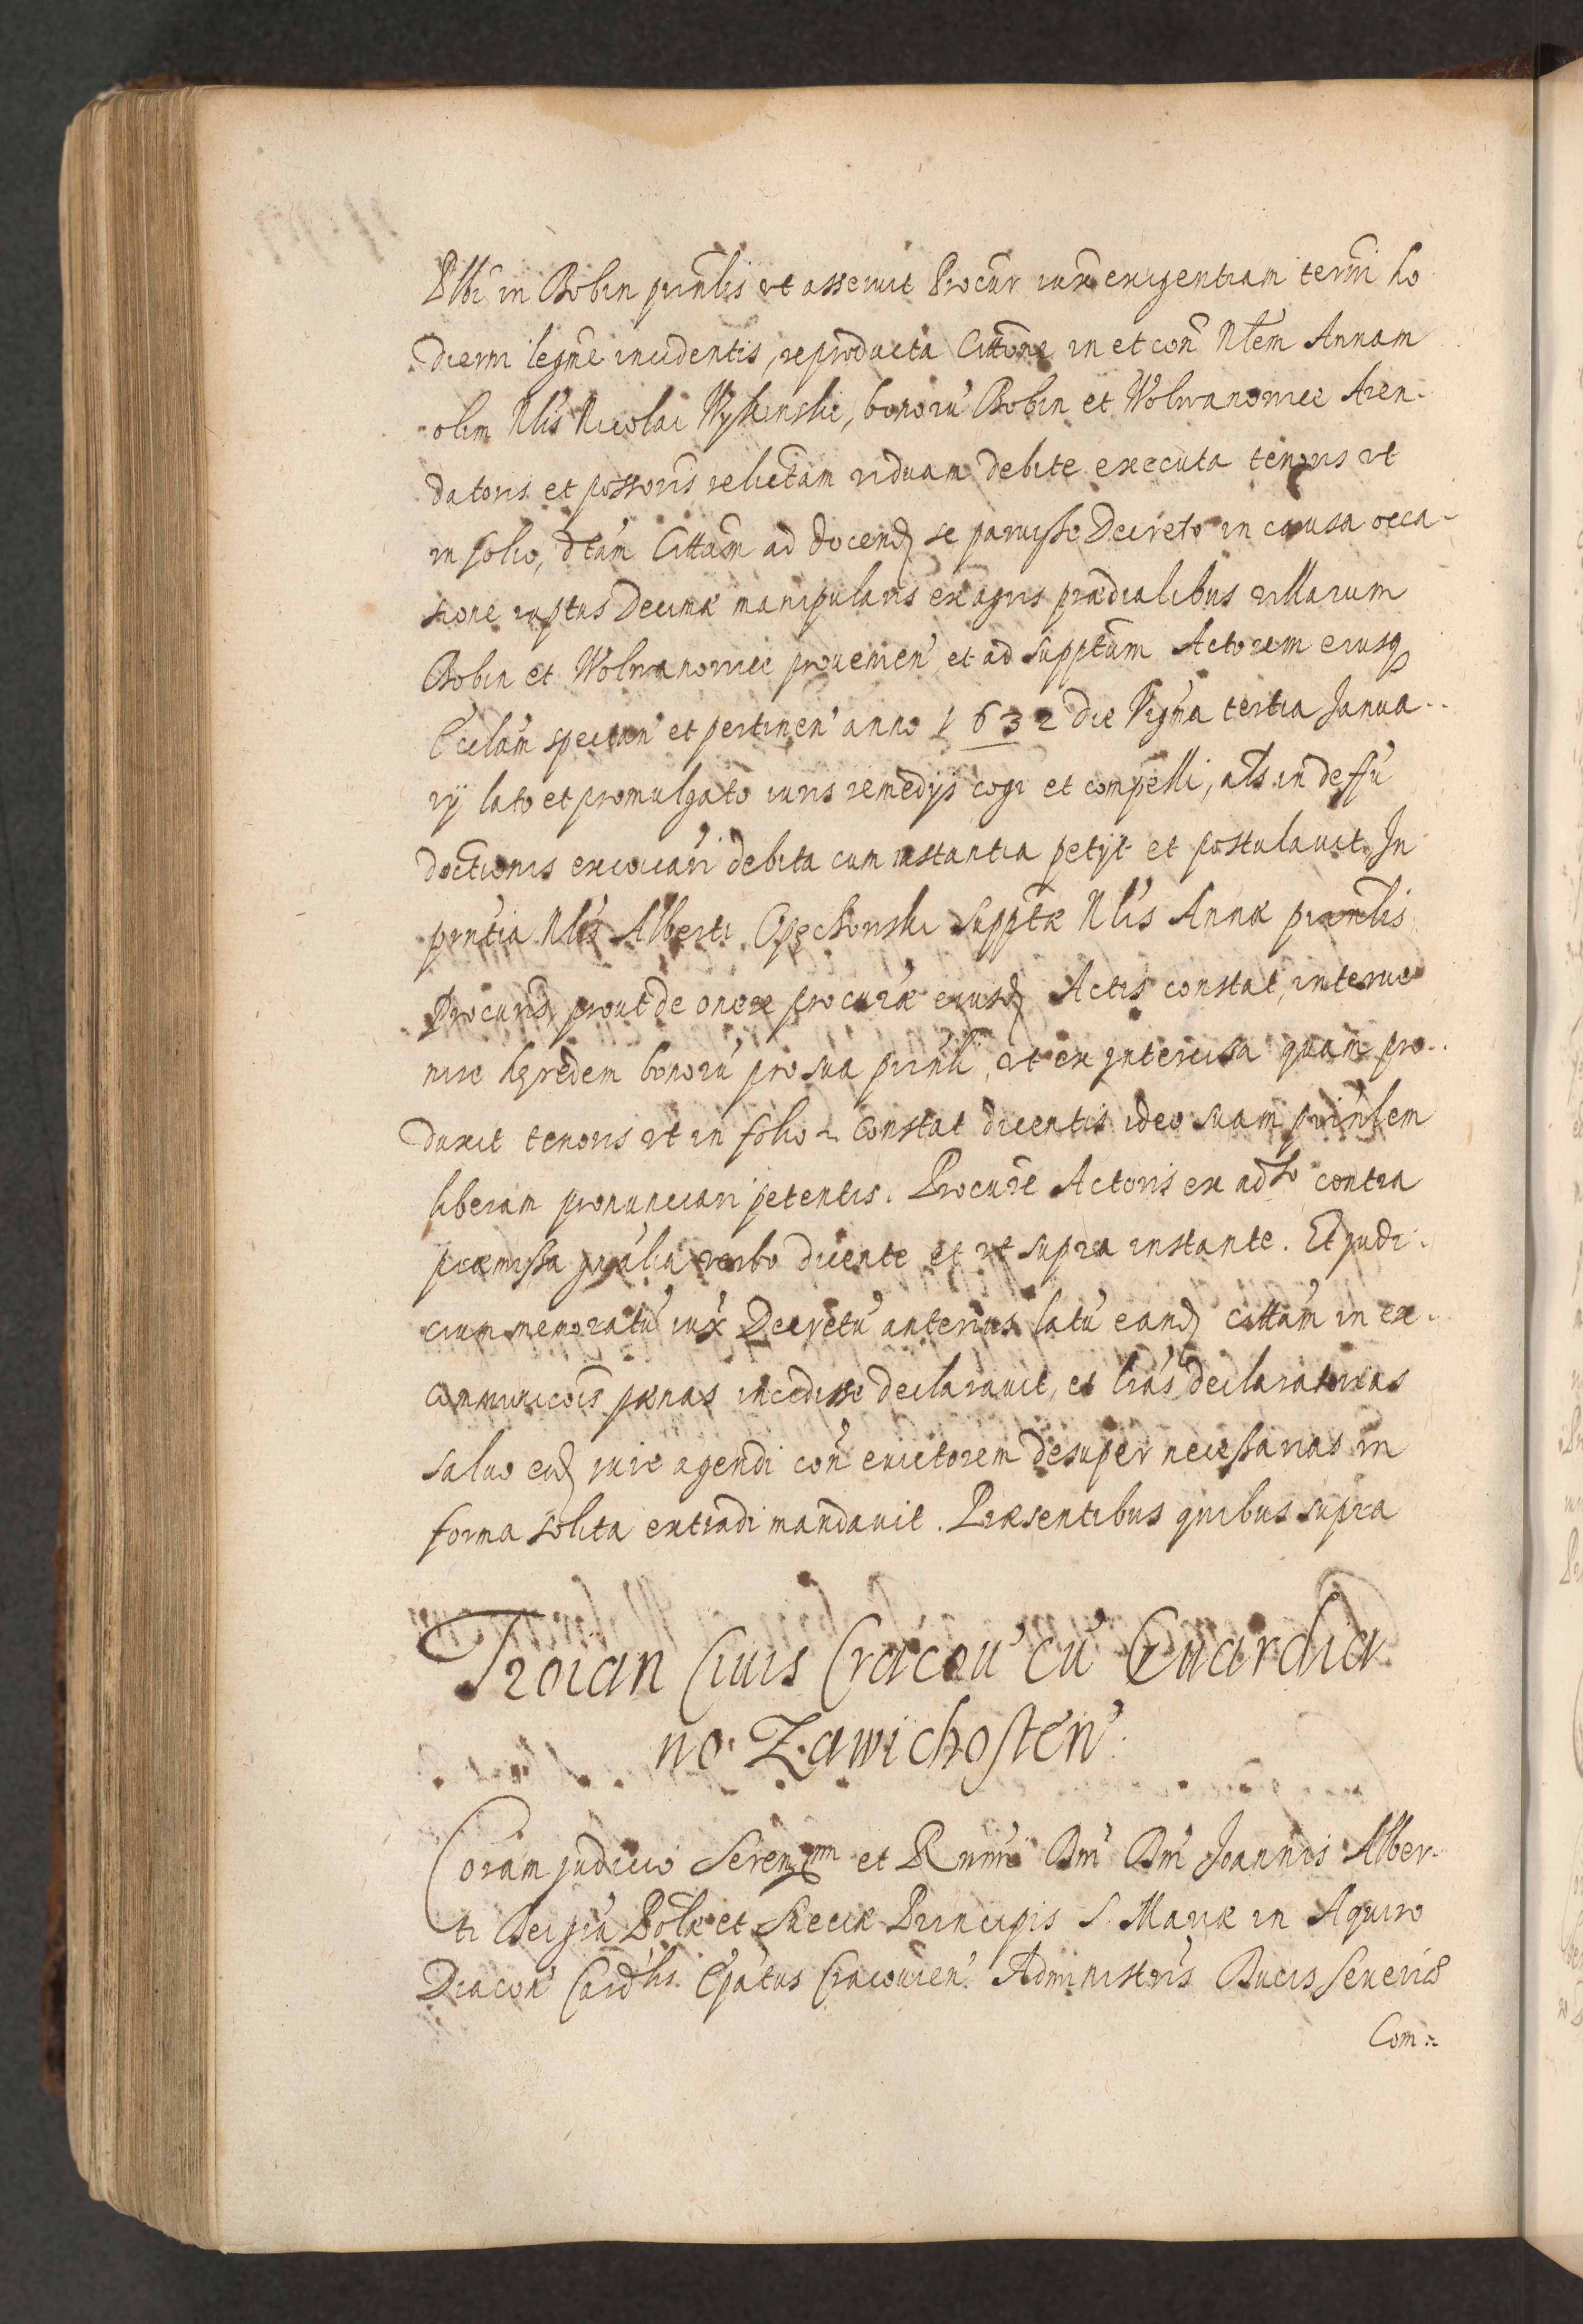 Plbi in Bobin prinlis ut asseruit Procur iux exigentiam termi ho
dierni legme incidentis, reproducta Cittone in et con Nlem Annam
olim Nlis Nicolai Wyskinski, bonoru Bobin et Wolwanowice Aren-
datoris et possoris relictam viduam debite executa tenoris ut
in folio, dtam Cittam ad docend se paruisse Decreto in causa occa-
sione raptus Decimæ manipularis ex agris prædialibus villarum
Bobin et Wolwanowice prouenien et ad supptum Actorem eiusq
Ecclam spectan et pertinen anno 1632 die Vigma tertia Janua-
rij lato et promulgato iuris remedijs cogi et compelli, als in deffu
doctionis excoicari debita cum instantia petijt et postulauit. In
pntia Nlis Alberti Opechowski supptæ Nlis Annæ prinlis
Procuris, prout de onere procuræ eiusd Actis constat, interue
nire hæredem bonoru pro sua prinli, ut ex intercisa quam pro-
duxit tenoris ut in folio constat dicentis ideo suam prinlem
liberam pronunciari petentis. Procure Actoris ex adso contra
præmissa gnalia verbo dicente et ut supra instante. Et judi-
cium memoratu iux Decretu anterius latu eand cittam in ex-
communicois pænas incidisse declarauit, et lras declaratorias
saluo eid iure agendi con euictorem desuper necessarias in
forma solita extradi mandauit. Præsentibus quibus supra
Troian Ciuis Cracou cu Guardia
no Zawichosten
Coram judicio Serenmi et Rnmi Dni Dni Joannis Alber-
ti Dei gra Polæ et Sueciæ Principis S. Mariæ in Aquiro
Diacon Cardlis Epatus Cracouien Administris Ducis Seueriæ
Com: